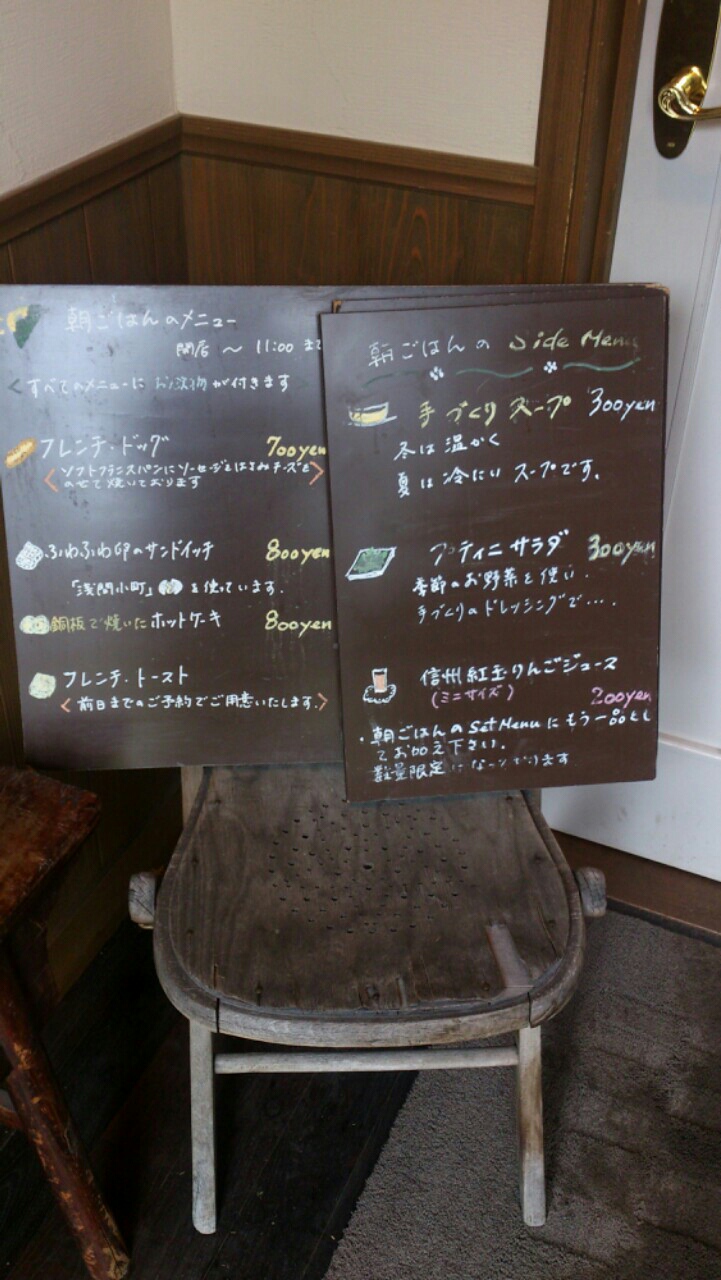 朝ごはんのメニュー
開店 〜 11:00 まで
すべてのメニューに お飲物 が付きます
フレンチ・ドッグ 700yen
ソフトフランスパンにソーセージとはよねチーズを
のせて焼いております
ふわふわ卵のサンドイッチ 800yen
「浅間小町」 を使っています.
銅板で焼いたホットケーキ 800yen
フレンチ・トースト
前日までのご予約でご用意いたします.
朝ごはんの Side Menu
手づくり スープ 300yen
冬は温かく
夏は冷たい スープです.
プティニサラダ 300yen
季節のお野菜を使い.
手づくりのドレッシングで・・・.
信州紅玉りんごジュース
(ミニサイズ) 200yen
・朝ごはんの Set Menu に もう一品とし
てお加え下さい.
数量限定 になっております